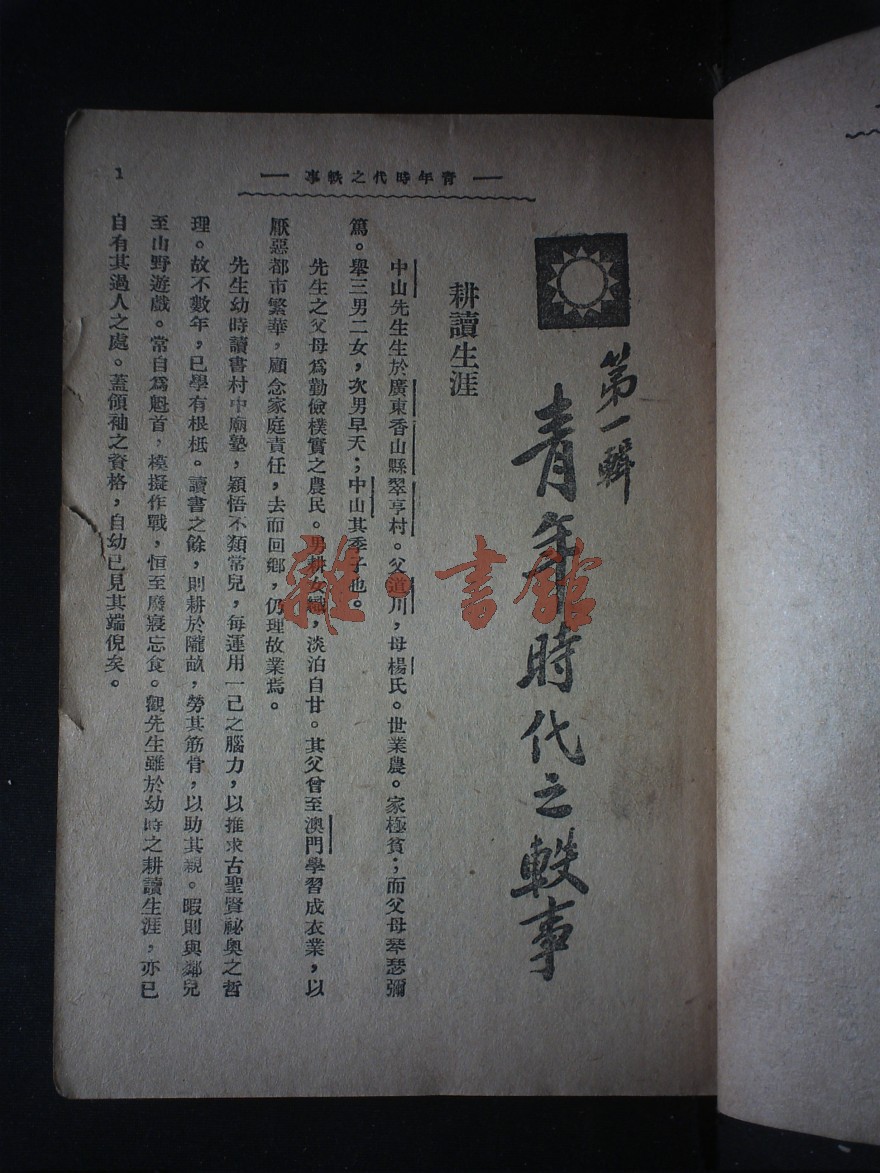 事軼之代時年青
1
第一輯
青年時代之軼事
耕讀生涯
中山先生生於廣東香山縣翠亨村。父道川，母楊氏。世業農。家極貧；而父母琴瑟彌
篤。舉三男二女，次男早夭；中山其季子也。
先生之父母爲勤儉樸實之農民。男耕女織，淡泊自甘。其父曾至澳門學習成衣業，以
厭惡都市繁華，顧念家庭責任，去而回鄉，仍理故業焉。
先生幼時讀書村中廟塾，穎悟不類常兒，每運用一己之腦力，以推求古聖賢祕奧之哲
理。故不數年，已學有根柢。讀書之餘，則耕於隴畝，勞其筋骨，以助其親。暇則與鄰兒
至山野遊戲。常自爲魁首，模擬作戰，恒至廢寢忘食。觀先生雖於幼時之耕讀生涯，亦已
自有其過人之處。蓋領袖之資格，自幼已見其端倪矣。
雜書館